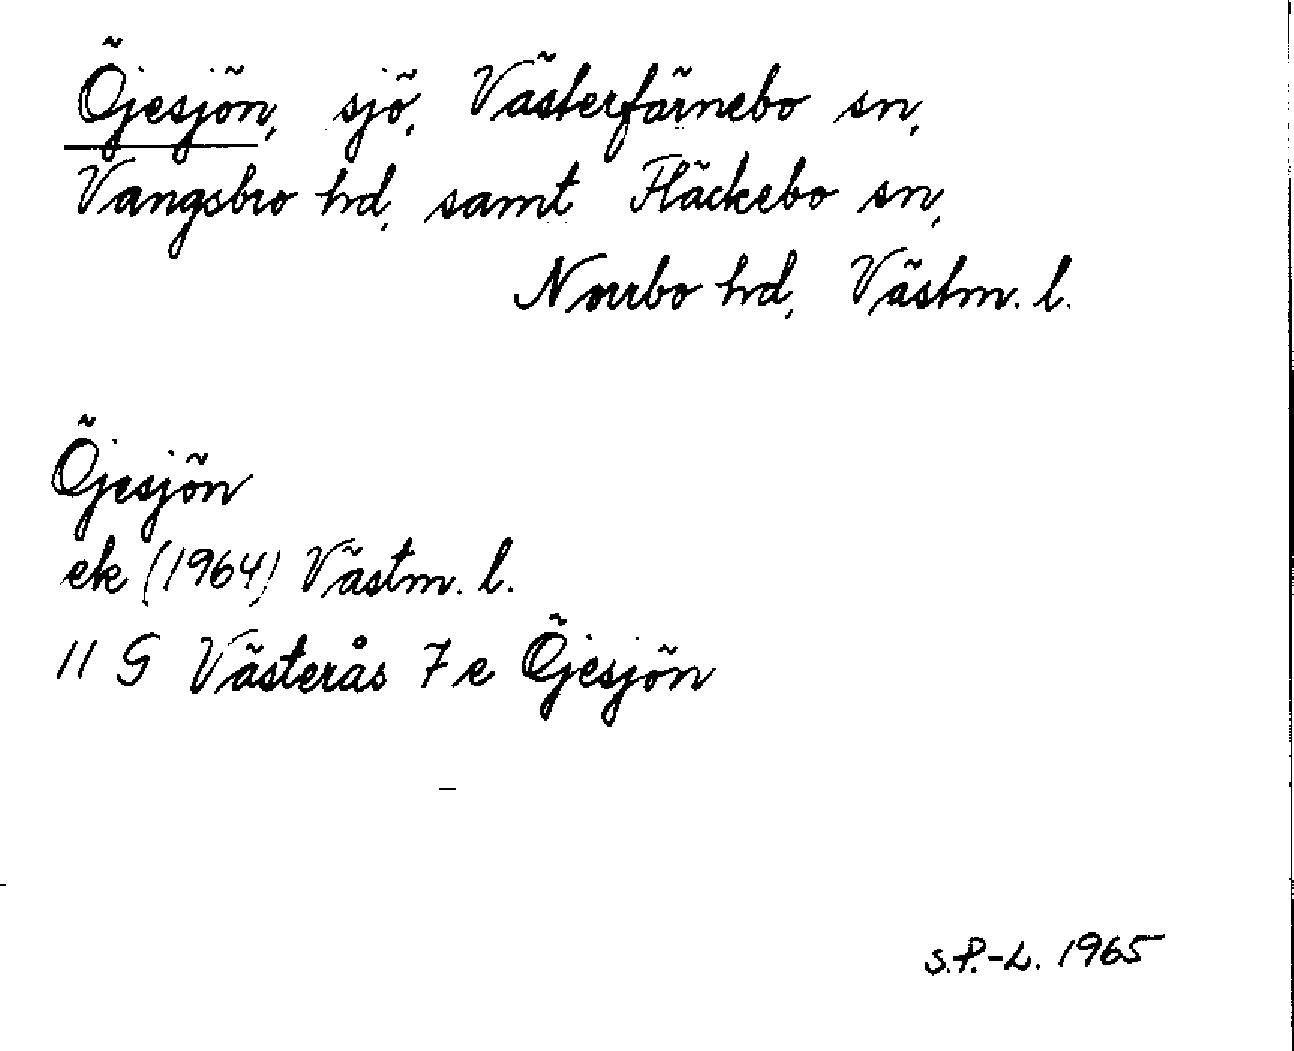 Öjesjön, sjö, Västerfärnebo sn,
Vangsbro hd, samt Fläckebo sn,
Norrbo hd, Västm. l.
Öjesjön
ek (1964) Västm. l.
11 G Västerås 7 e Öjesjön
S.P.-L. 1965